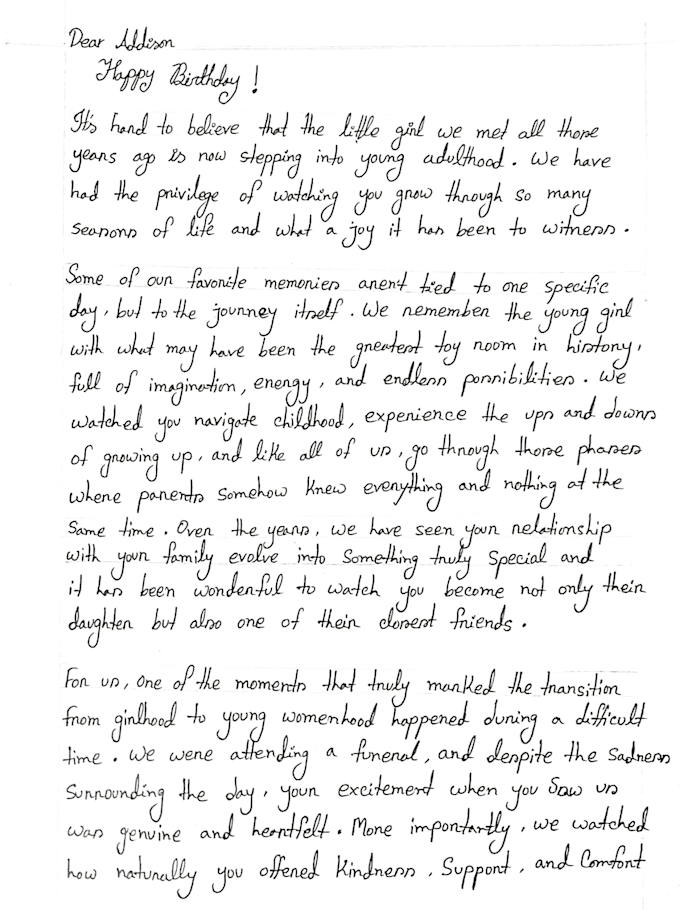 Dear Addison
Happy Birthday !
It's hard to believe that the little girl we met all those
years ago is now stepping into young adulthood. We have
had the privilege of watching you grow through so many
seasons of life and what a joy it has been to witness.
Some of our favorite memories arent tied to one specific
day, but to the journey itself. We remember the young girl
with what may have been the greatest toy room in history,
full of imagination, energy, and endless possibilities. We
watched you navigate childhood, experience the ups and downs
of growing up, and like all of us, go through those phases
where parents somehow knew everything and nothing at the
same time. Over the years, we have seen your relationship
with your family evolve into something truly special and
it has been wonderful to watch you become not only their
daughter but also one of their closest friends.
For us, one of the moments that truly marked the transition
from girlhood to young womenhood happened during a difficult
time. We were attending a funeral, and despite the sadness
surrounding the day, your excitement when you saw us
was genuine and heartfelt. More importantly, we watched
how naturally you offered kindness, support, and comfort